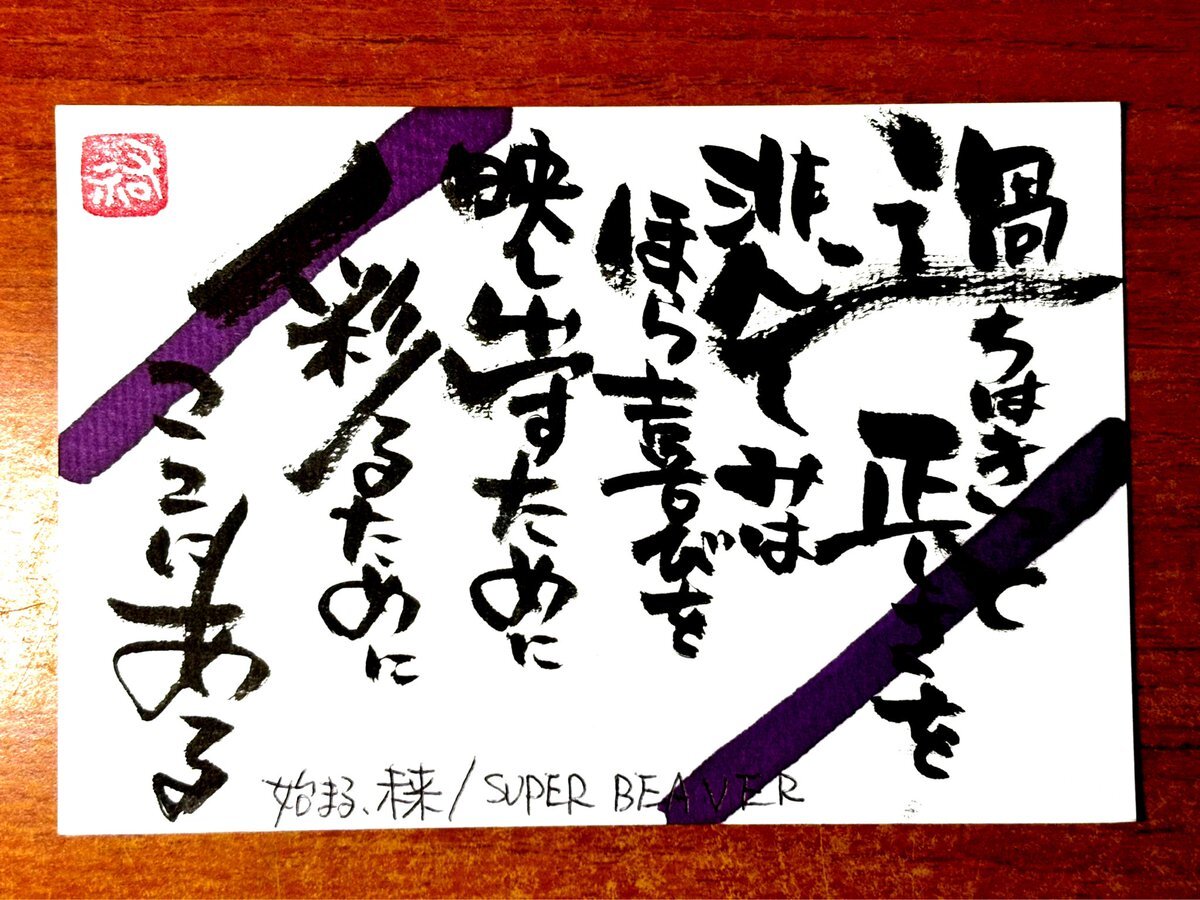 過ちはきっと
正しさを
悲しみは
ほら喜びを
映し出すために
彩るために
ここにある
始まる、未来/SUPER BEAVER